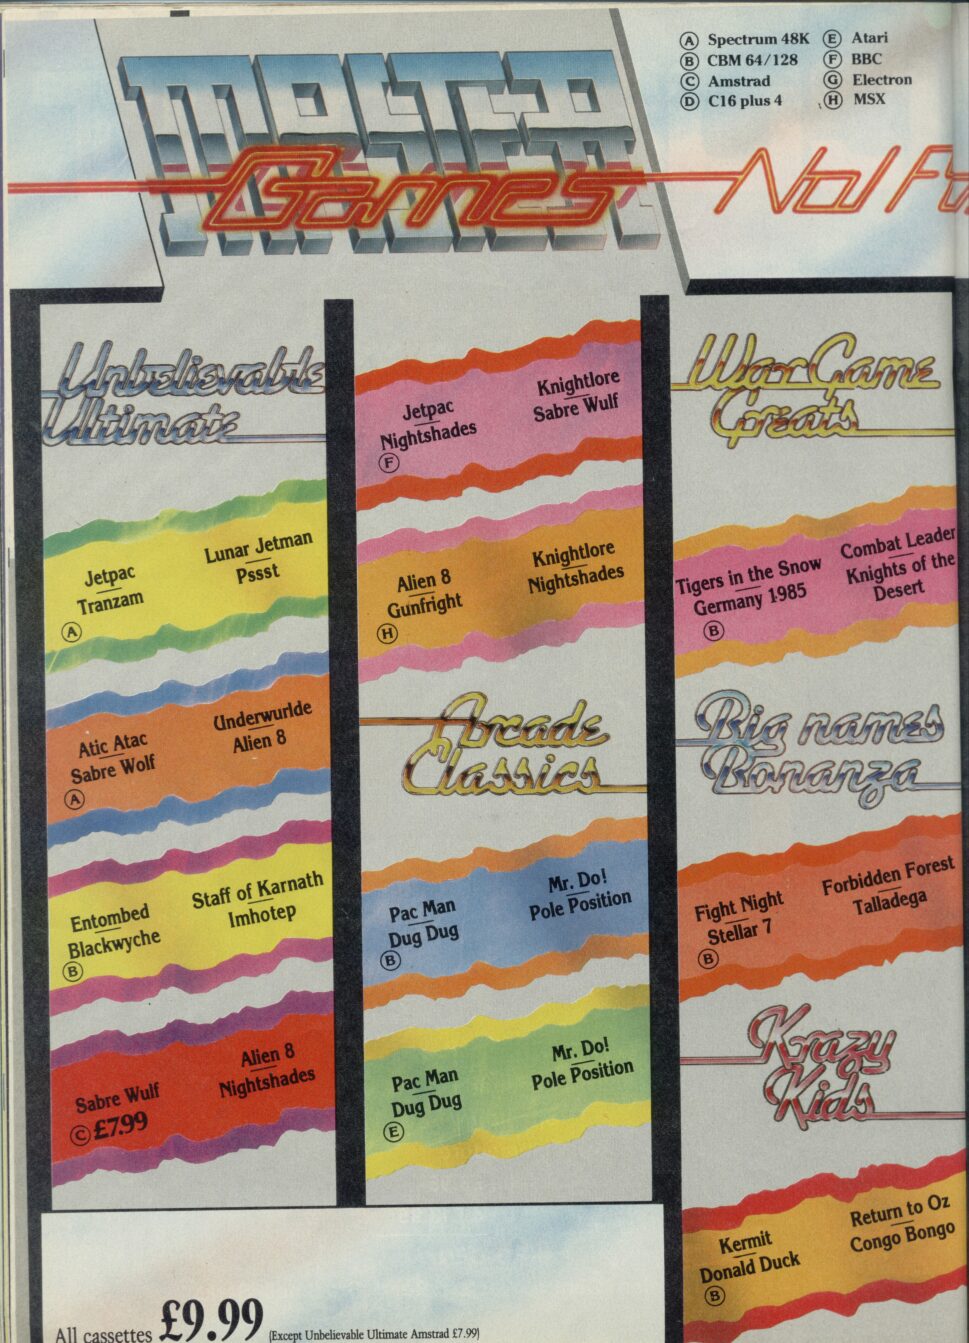 Ⓐ Spectrum 48K Ⓔ Atari
Ⓑ CBM 64/128 Ⓕ BBC
Ⓒ Amstrad Ⓖ Electron
Ⓓ C16 plus 4 Ⓗ MSX
Games
Unbelievable
Ultimate
Jetpac
Tranzam
Lunar Jetman
Pssst
Ⓐ
Atic Atac
Sabre Wolf
Underwurlde
Alien 8
Ⓐ
Entombed
Blackwyche
Staff of Karnath
Imhotep
Ⓑ
Sabre Wulf
Alien 8
Nightshades
Ⓒ £7.99
Jetpac
Nightshades
Knightlore
Sabre Wulf
Ⓕ
Alien 8
Gunfright
Knightlore
Nightshades
Ⓗ
Arcade
Classics
Pac Man
Dug Dug
Mr. Do!
Pole Position
Ⓑ
Pac Man
Dug Dug
Mr. Do!
Pole Position
Ⓔ
War Game
Greats
Tigers in the Snow
Germany 1985
Combat Leader
Knights of the
Desert
Ⓑ
Big names
Bonanza
Fight Night
Stellar 7
Forbidden Forest
Talladega
Ⓑ
Krazy
Kids
Kermit
Donald Duck
Return to Oz
Congo Bongo
Ⓑ
All cassettes £9.99 (Except Unbelievable Ultimate Amstrad £7.99)